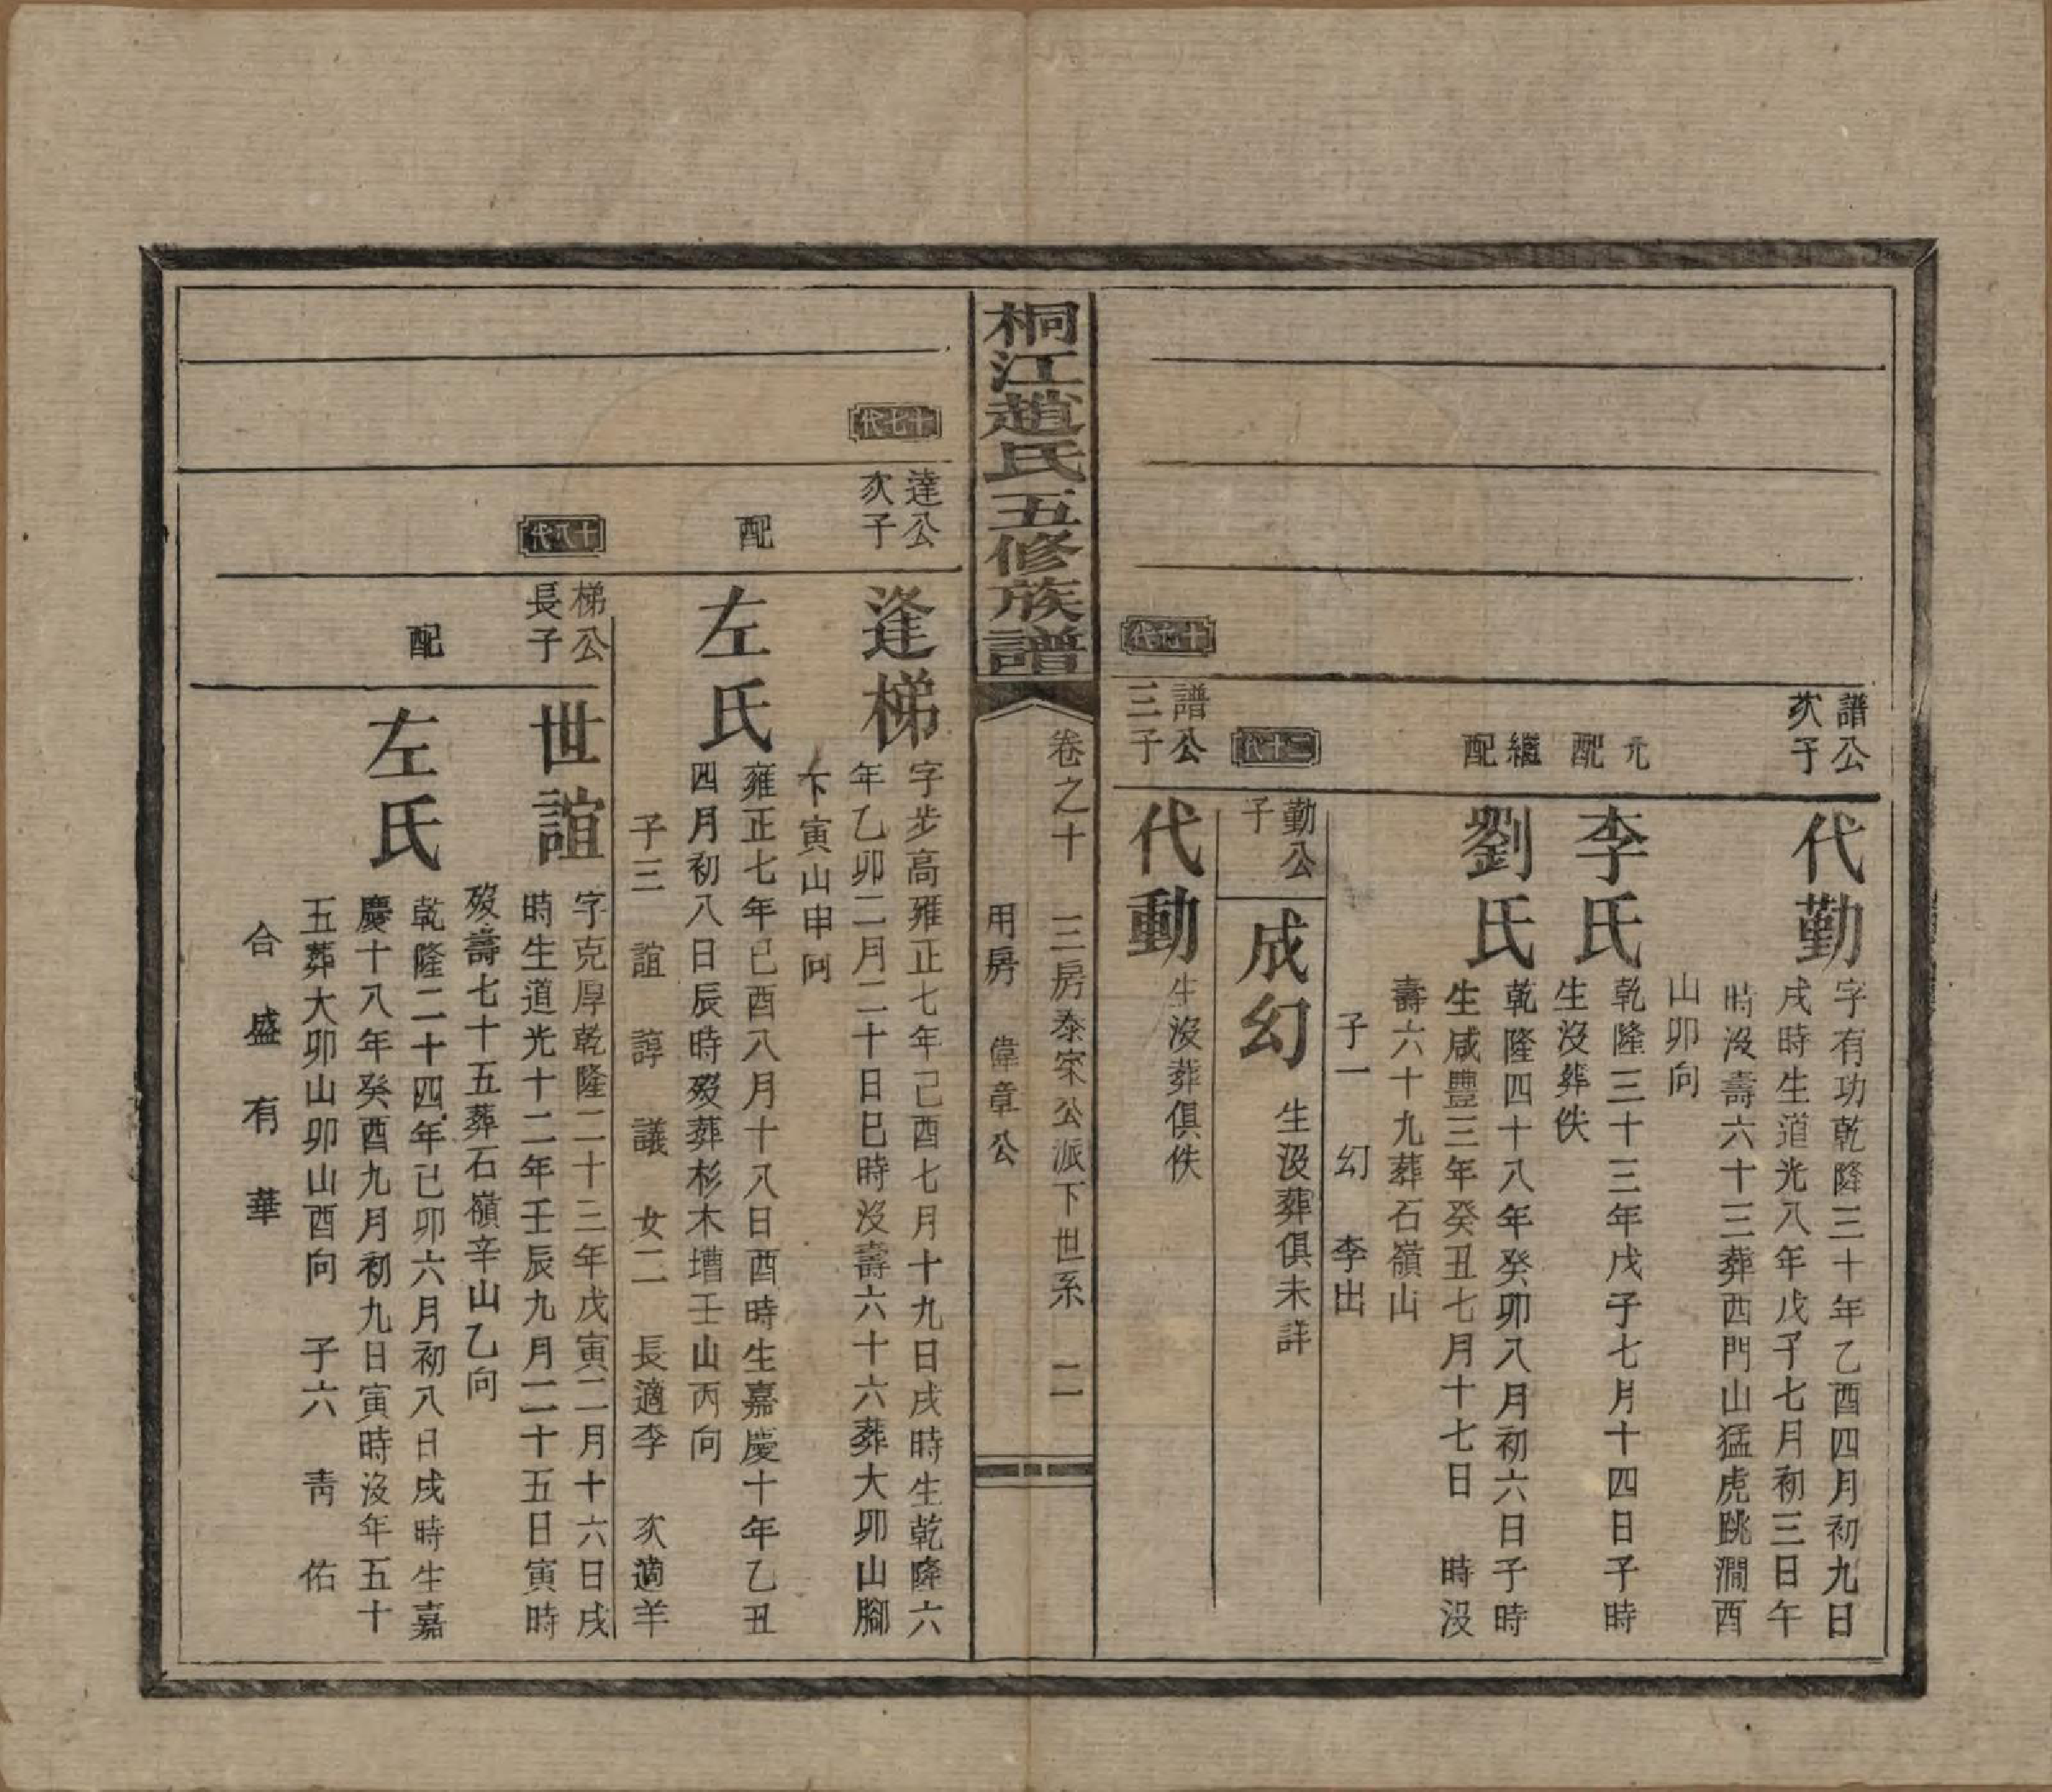 譜公
次子
代勤
字有功乾隆三十年乙酉四月初九日
戌時生道光八年戊子七月初三日午
時沒壽六十三葬西門山猛虎跳澗酉
山卯向
元
配
李氏
乾隆三十三年戊子七月十四日子時
生沒葬佚
繼
配
劉氏
乾隆四十八年癸卯八月初六日子時
生咸豐三年癸丑七月十七日 時沒
壽六十九葬石嶺山
子一 幻 李出
二十代
勤公
子
成幻
生沒葬俱未詳
十九代
譜公
三子
代動
生沒葬俱佚
桐江趙氏五修族譜
卷之十 三房泰宋公派下世系 二
用房 偉章公
十七代
達公
次子
逢梯
字步高雍正七年己酉七月十九日戌時生乾隆六
年乙卯二月二十日巳時沒壽六十六葬大卯山腳
下寅山申向
配
左氏
雍正七年己酉八月十八日酉時生嘉慶十年乙丑
四月初八日辰時歿葬杉木壋壬山丙向
子三 誼 諄 議 女二 長適李 次適羊
十八代
梯公
長子
世誼
字克厚乾隆二十三年戊寅二月十六日戌
時生道光十二年壬辰九月二十五日寅時
歿壽七十五葬石嶺辛山乙向
配
左氏
乾隆二十四年己卯六月初八日戌時生嘉
慶十八年癸酉九月初九日寅時沒年五十
五葬大卯山卯山酉向 子六 靑 佑
合 盛 有 華